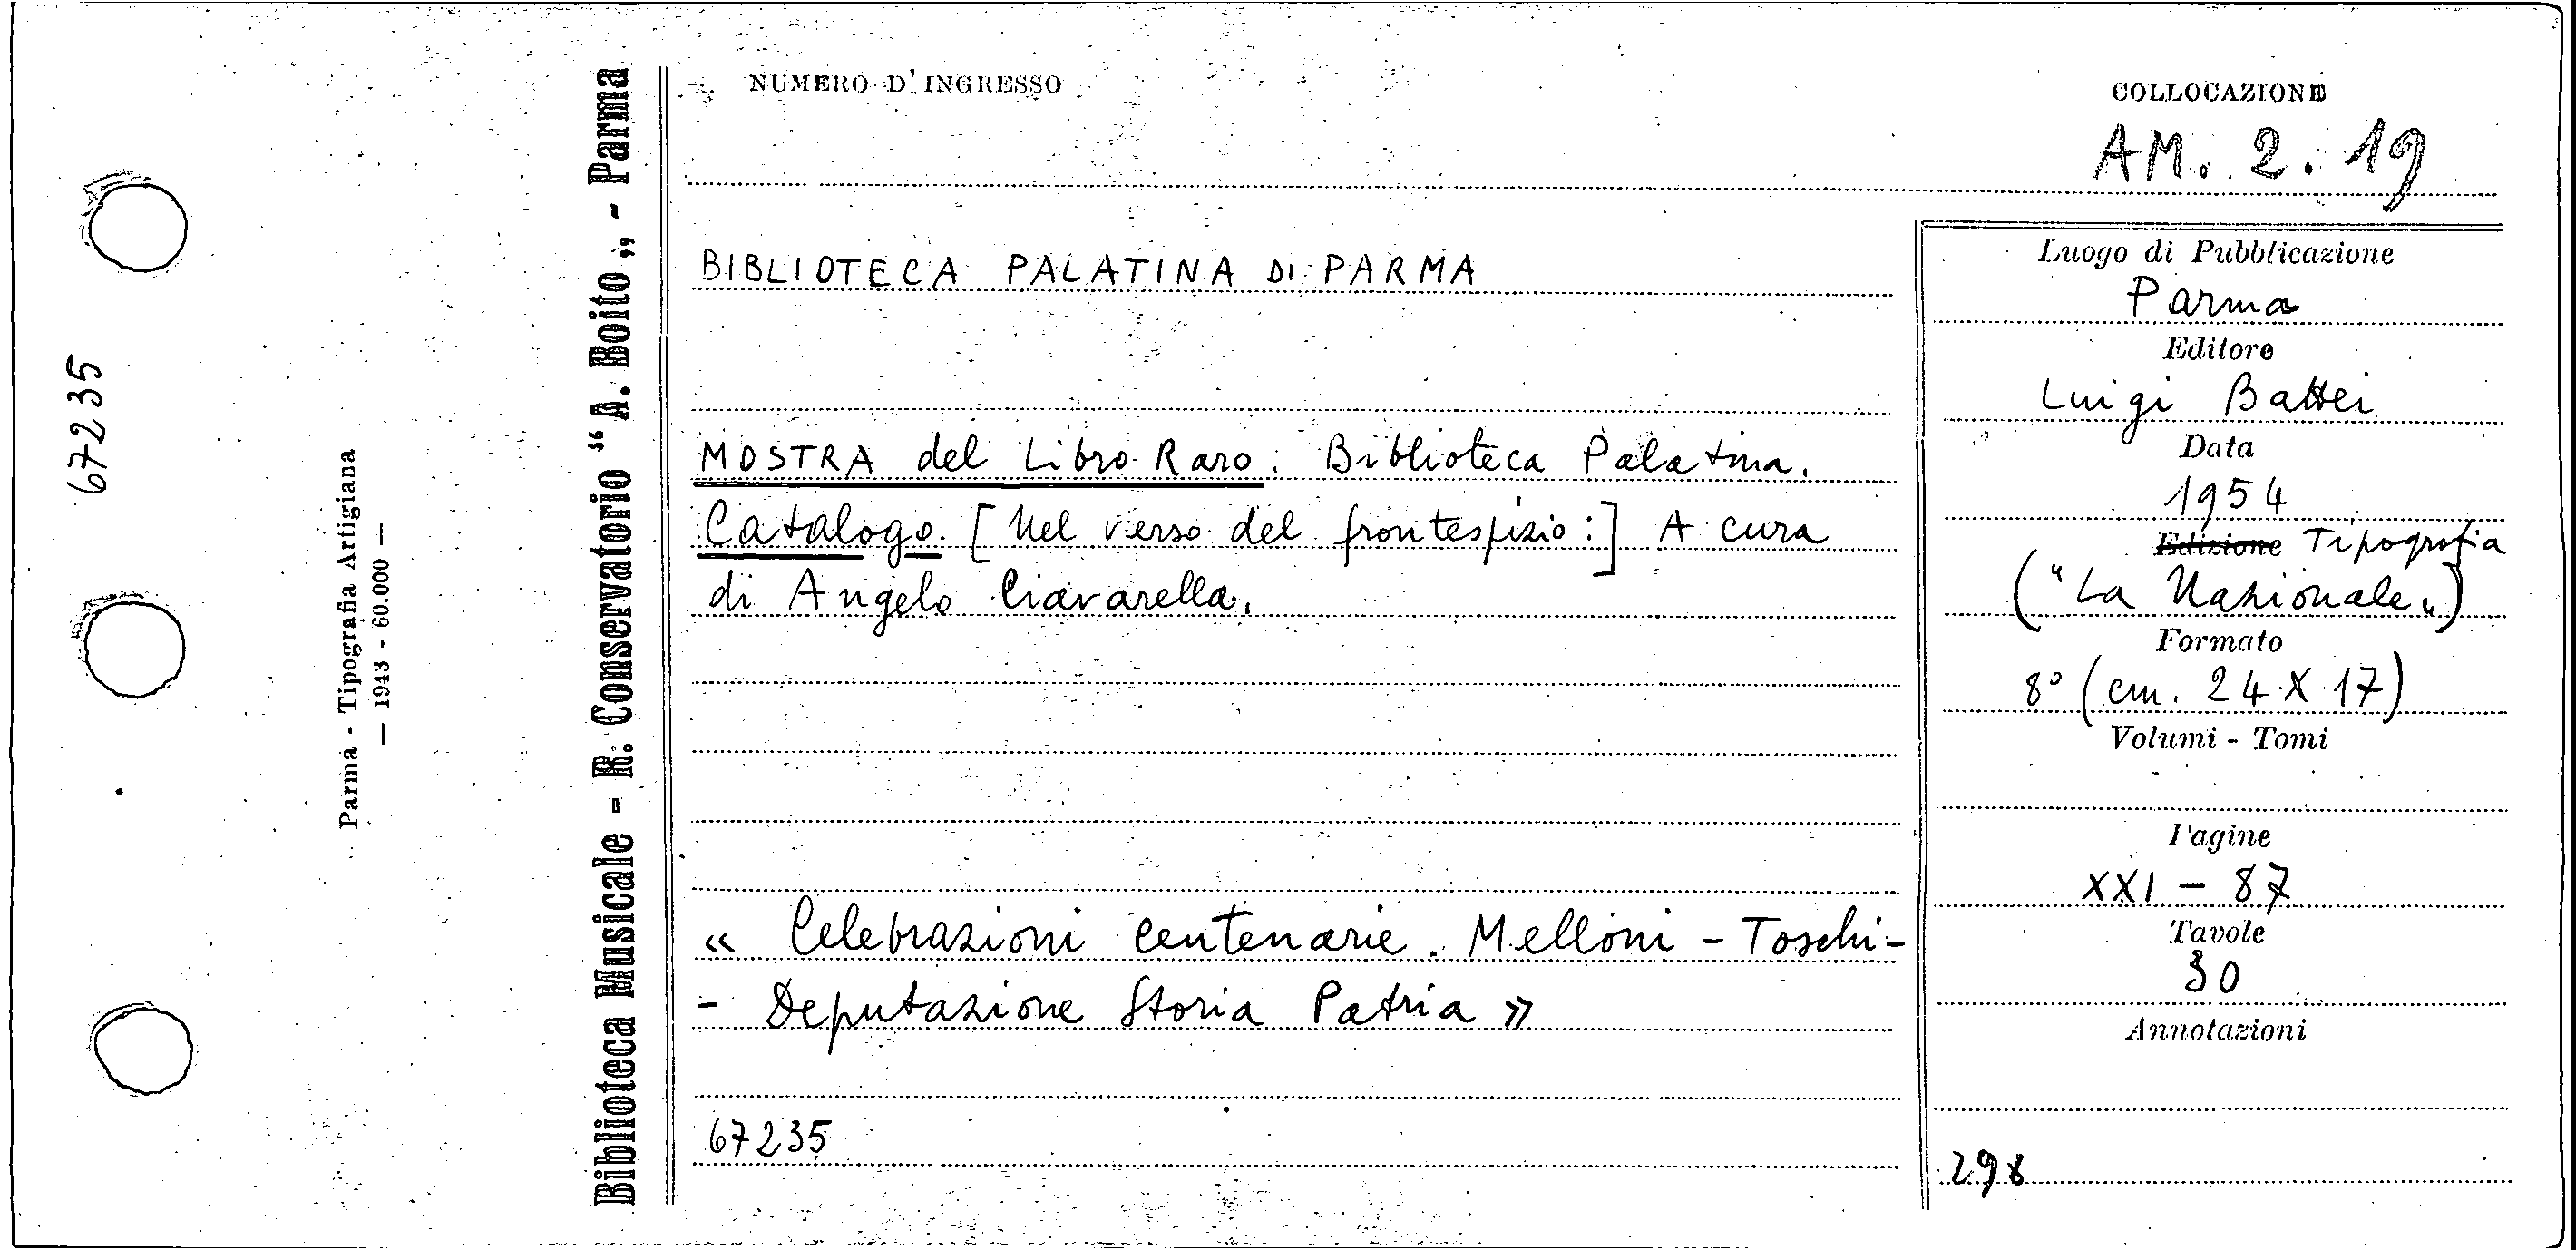 67235
Parma - Tipografia Artigiana
— 1943 - 60.000 —
Biblioteca Musicale - R. Conservatorio “ A. Boito „ - Parma
NUMERO D'INGRESSO
COLLOCAZIONE
AM. 2. 19
BIBLIOTECA PALATINA DI PARMA
MOSTRA del Libro Raro. Biblioteca Palatina.
Catalogo. [Nel verso del frontespizio:] A cura
di Angelo Ciavarella.
« Celebrazioni centenarie. Melloni - Toschi -
- Deputazione Storia Patria »
67235
Luogo di Pubblicazione
Parma
Editore
Luigi Battei
Data
1954
Edizione Tipografia
("La Nazionale„)
Formato
8° (cm. 24 X 17)
Volumi - Tomi
Pagine
XXI — 87
Tavole
30
Annotazioni